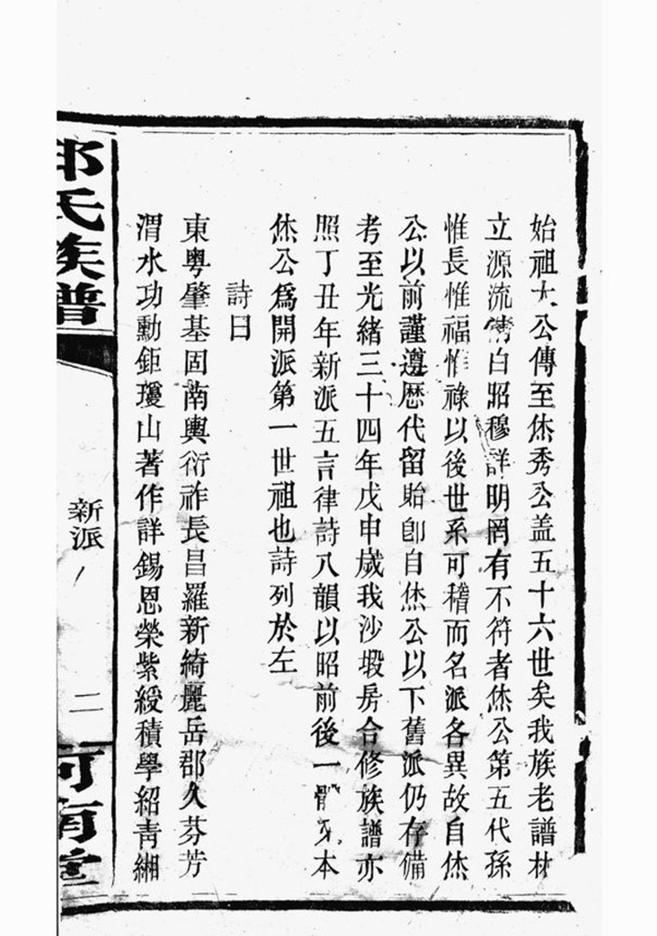 始祖太公傳至烋秀公盖五十六世矣我族老譜材
立源流清白昭穆詳明罔有不符者烋公第五代孫
惟長惟福惟祿以後世系可稽而名派各異故自烋
公以前謹遵歷代留貽卽自烋公以下舊派仍存備
考至光緒三十四年戊申歲我沙塅房合修族譜亦
照丁丑年新派五言律詩八韻以昭前後一體本
烋公爲開派第一世祖也詩列於左
詩曰
東粵肇基固南輿衍祚長昌羅新綺麗岳郡久芬芳
渭水功勳鉅瓊山著作詳錫恩榮紫綬積學紹靑緗
邵氏族譜
新派
二
河南堂